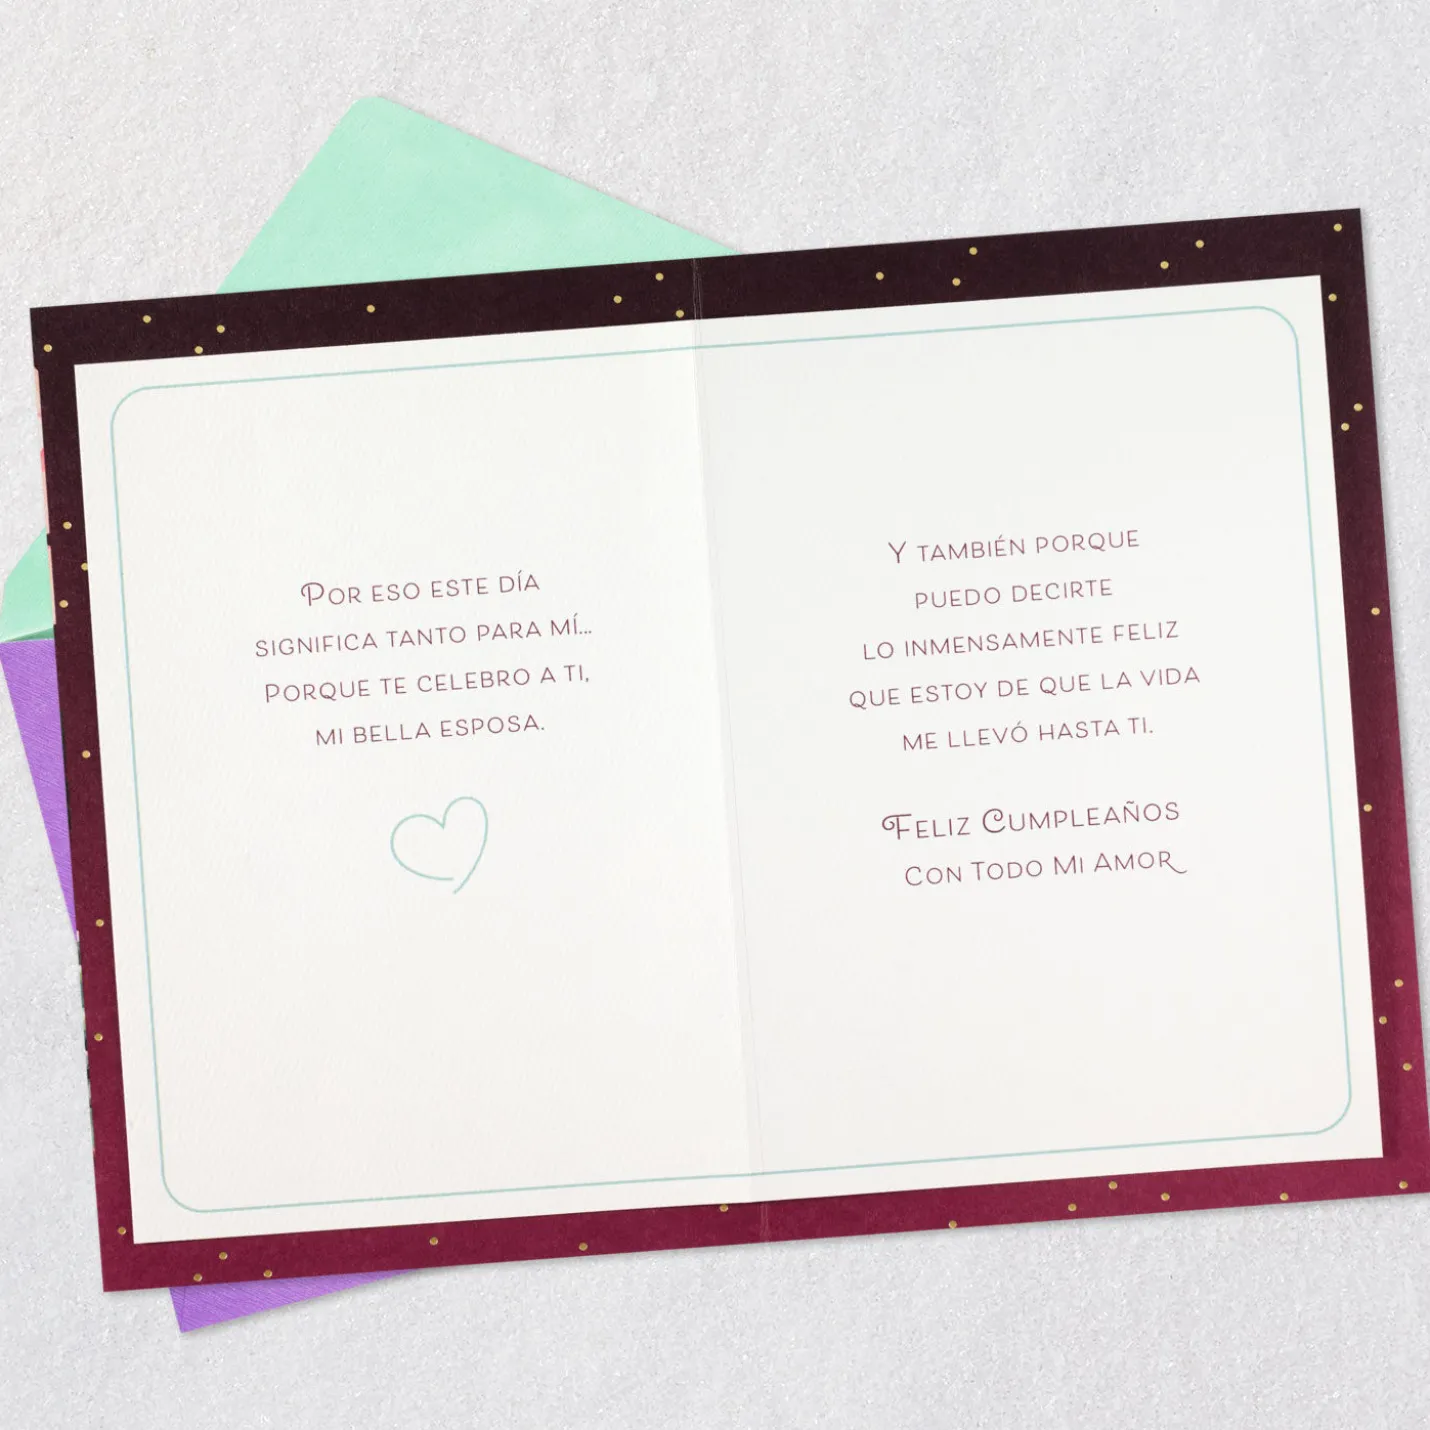 Por eso este día
significa tanto para mí...
Porque te celebro a ti,
mi bella esposa.
Y también porque
puedo decirte
lo inmensamente feliz
que estoy de que la vida
me llevó hasta ti.
Feliz Cumpleaños
con Todo Mi Amor